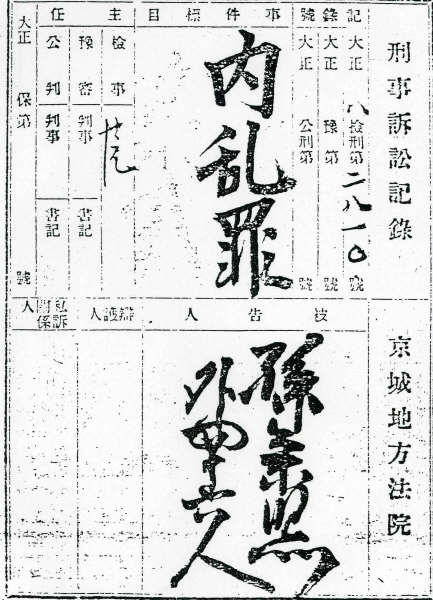 刑事訴訟記錄
京城地方法院
記錄號
大正八檢刑第二八一〇號
大正 豫第 號
大正 公刑第 號
事件標目
内乱罪
主任
檢事
豫審 判事 書記
公判 判事 書記
大正 保第 號
被告人
孫秉熙
外四十六人
辯護人
私訴關係人